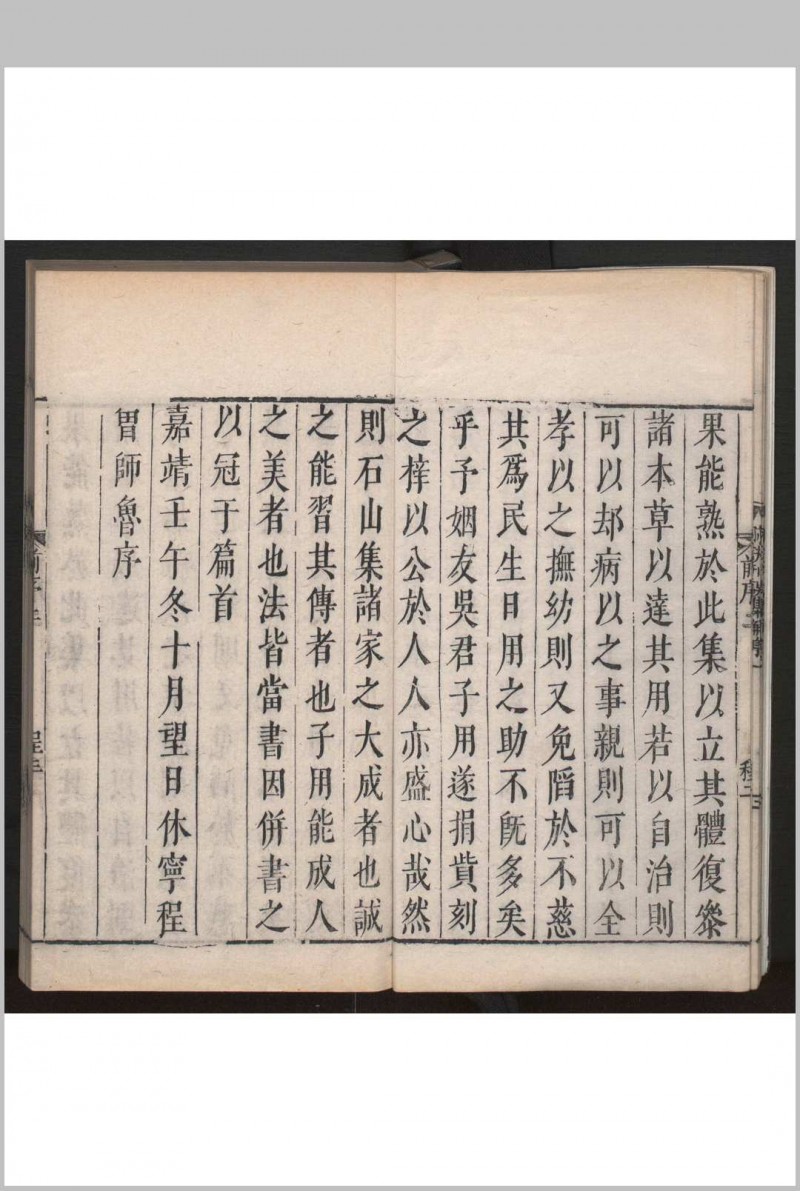 果能熟於此集以立其體復叅
諸本草以達其用若以自治則
可以却病以之事親則可以全
孝以之撫幼則又免䧟於不慈
其爲民生日用之助不旣多矣
乎予姻友吳君子用遂捐貲刻
之梓以公於人人亦盛心哉然
則石山集諸家之大成者也誠
之能習其傳者也子用能成人
之美者也法皆當書因併書之
以冠于篇首
嘉靖壬午冬十月望日休寧程
曽師魯序
前序
程二